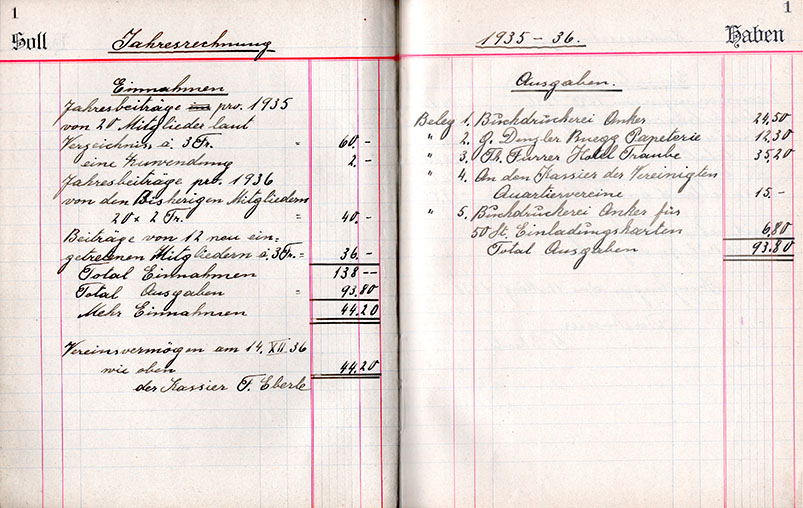 1
Soll
Jahresrechnung
Einnahmen
Jahresbeiträge pro. 1935
von 20 Mitglieder laut
Verzeichnis, à 3 Fr. " 60.-
eine Zuwendung 2.-
Jahresbeiträge pro. 1936
von den Bisherigen Mitgliedern
20 x 2 Fr. " 40.-
Beiträge von 12 neu ein=
getretenen Mitgliedern à 3 Fr. = 36.-
Total Einnahmen 138 --
Total Ausgaben " 93.80
Mehr Einnahmen 44.20
Vereinsvermögen am 14. XII. 36
wie oben 44.20
der Kassier F. Eberle
1
1935 - 36.
Haben
Ausgaben.
Beleg 1. Buchdruckerei Anker 24.50
" 2. G. Dengler Ruegg Papeterie 12.30
" 3. Th. Furrer Hotel Traube 35.20
" 4. An den Kassier der Vereinigten
Quartiervereine 15.-
" 5. Buchdruckerei Anker für
50 St. Einladungskarten 6.80
Total Ausgaben 93.80